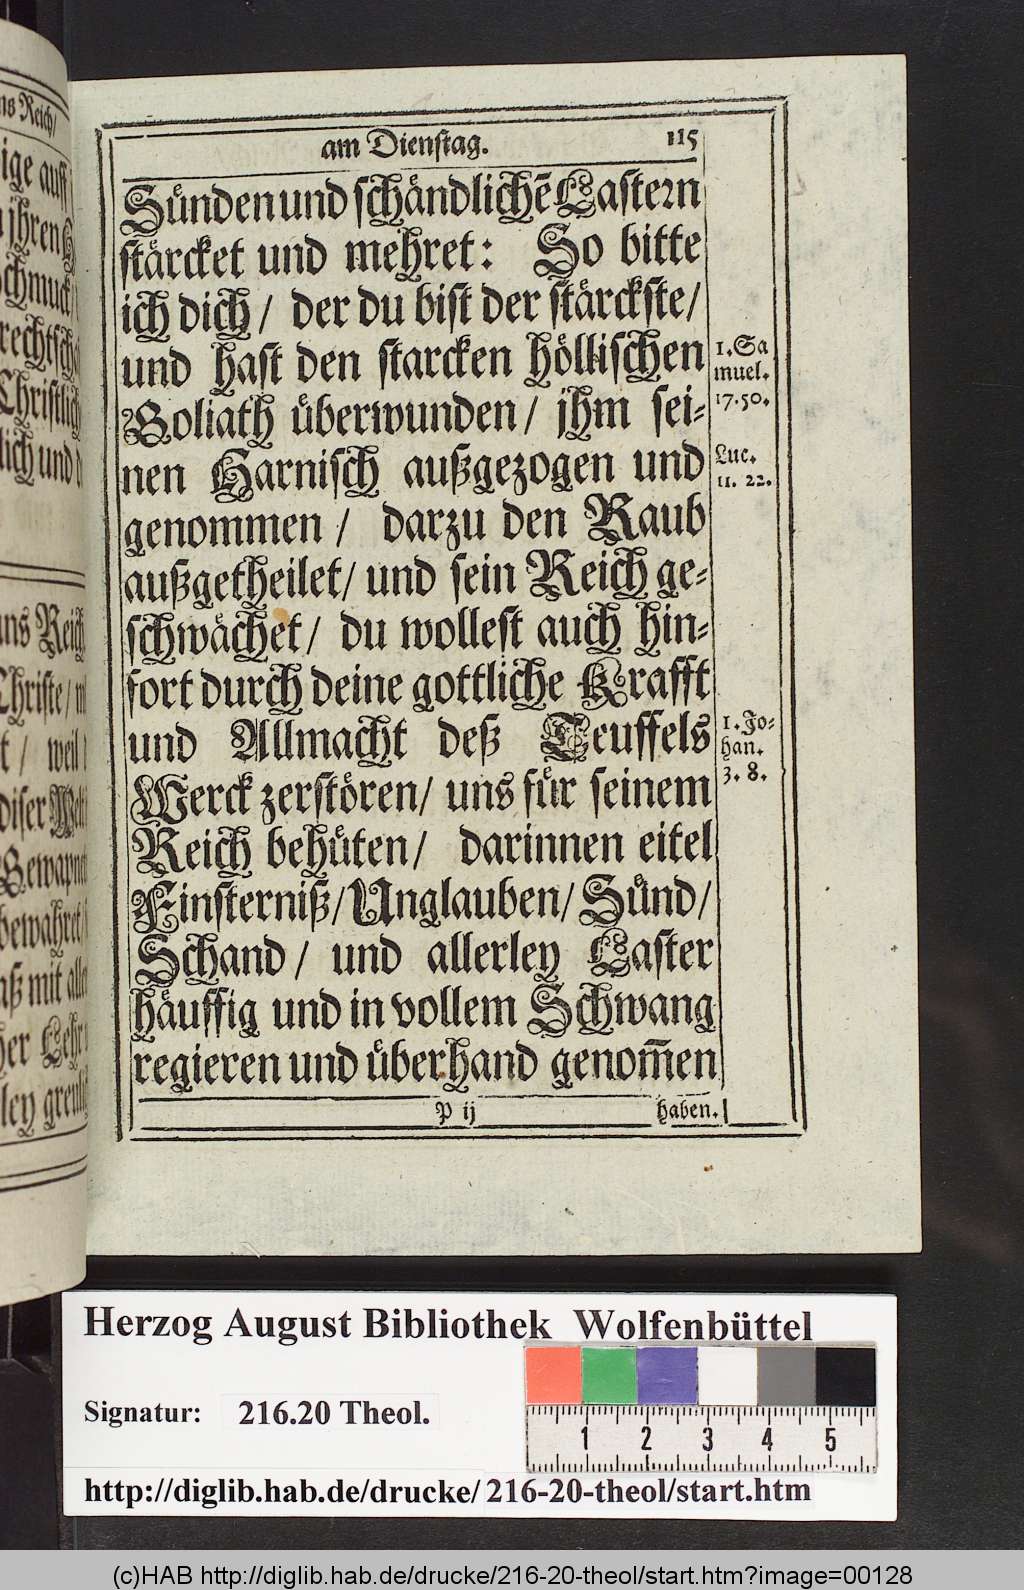 am Dienstag. 115
Sünden und schändlichẽ Lastern
stärcket und mehret: So bitte
ich dich / der du bist der stärckste /
und hast den starcken höllischen
Goliath überwunden / jhm sei-
nen Harnisch außgezogen und
genommen / darzu den Raub
außgetheilet / und sein Reich ge-
schwächet / du wollest auch hin-
fort durch deine gottliche Krafft
und Allmacht deß Teuffels
Werck zerstören / uns für seinem
Reich behüten / darinnen eitel
Finsterniß / Unglauben / Sünd /
Schand / und allerley Laster
häuffig und in vollem Schwang
regieren und überhand genom̃en
P ij haben.
1. Sa
muel.
17. 50.
Luc.
11. 22.
1. Jo-
han.
3. 8.
ns Reich /
ige auff
jhren
schmuck
Christlich
lich und
ns Reich
Christe /
t / weil
diser Welt
bewahret
aß mit alle
her Lehr
ley greuli
Herzog August Bibliothek Wolfenbüttel
Signatur: 216.20 Theol.
1 2 3 4 5
http://diglib.hab.de/drucke/216-20-theol/start.htm
(c)HAB http://diglib.hab.de/drucke/216-20-theol/start.htm?image=00128